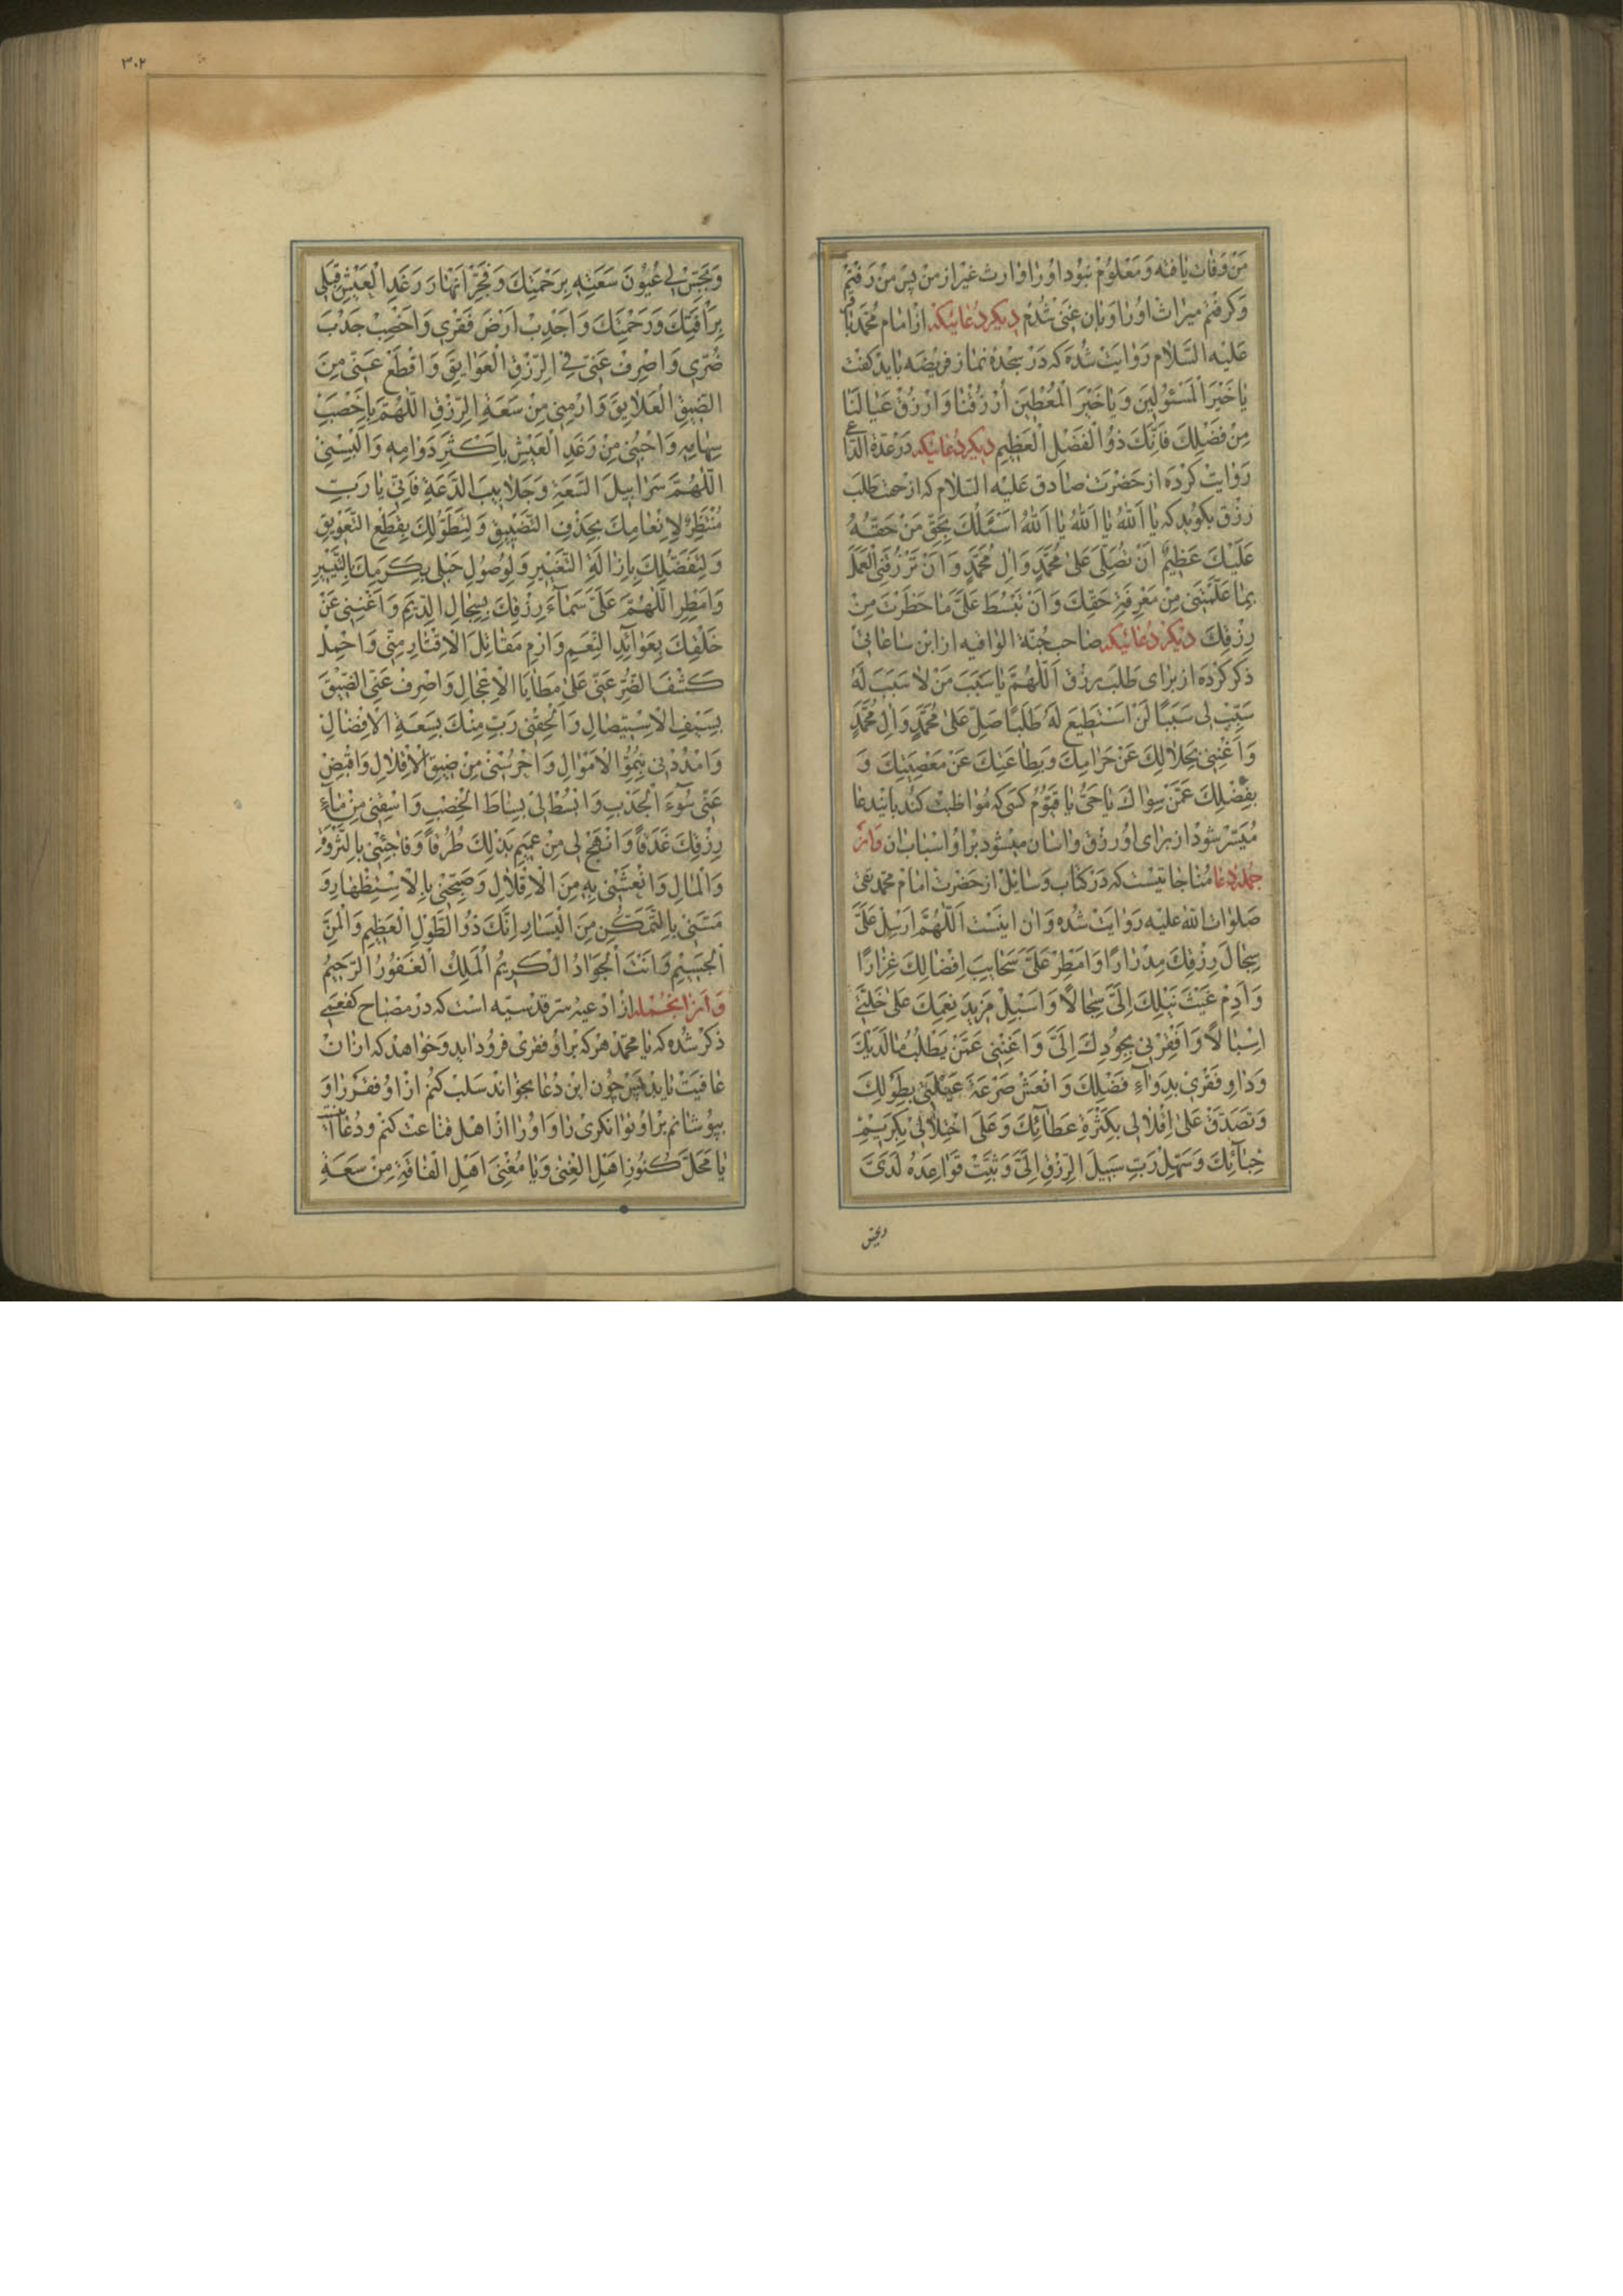 من وفات یافته و معلوم نبود او را وارث غیر از من پس من رفتم
و کرفتم میراث او را و بآن غنی شدم دیکر دعائیکه از امام محمد باقر
علیه السلام روایت شده که در سجدهٔ نماز فریضه باید کفت
يا خَيْرَ الْمَسْئُولِينَ وَيا خَيْرَ الْمُعْطِينَ اُرْزُقْنا وَارْزُقْ عِيالَنا
مِنْ فَضْلِكَ فَاِنَّكَ ذُو الْفَضْلِ الْعَظِيمِ دیکر دعائیکه در عدة الداعی
روایت کرده از حضرت صادق علیه السلام که از جهت طلب
رزق بکوید که يا اَللهُ يا اَللهُ يا اَللهُ اَسْئَلُكَ بِحَقِّ مَنْ حَقُّهُ
عَلَيْكَ عَظِيمٌ اَنْ تُصَلِّيَ عَلىٰ مُحَمَّدٍ وَالِ مُحَمَّدٍ وَاَنْ تَرْزُقَنِي الْعَمَلَ
بِما عَلَّمْتَنِي مِنْ مَعْرِفَةِ حَقِّكَ وَاَنْ تَبْسُطَ عَلَيَّ ما حَظَرْتَ مِنْ
رِزْقِكَ دیکر دعائیکه صاحب جنة الوافیه از ابن
ذکر کرده از برای طلب رزق اَللّٰهُمَّ يا سَبَبَ مَنْ لا سَبَبَ لَهُ
سَبِّبْ لِي سَبَبًا لَنْ اَسْتَطِيعَ لَهُ طَلَبًا صَلِّ عَلىٰ مُحَمَّدٍ وَالِ مُحَمَّدٍ
وَاَغْنِنِي بِحَلالِكَ عَنْ حَرامِكَ وَبِطاعَتِكَ عَنْ مَعْصِيَتِكَ وَ
بِفَضْلِكَ عَمَّنْ سِواكَ يا حَيُّ يا قَيُّومُ کسی که مواظبت کند باین دعا
میسر شود از برای او رزق و اسان میشود بر او اسباب ان و از
جمله دعا مناجاتیست که در کتاب وسایل از حضرت امام محمد تقی
صلوات الله علیه روایت شده و ان اینست اَللّٰهُمَّ اَرْسِلْ عَلَيَّ
سِجالَ رِزْقِكَ مِدْرارًا وَاَمْطِرْ عَلَيَّ سَحايِبَ اِفْضالِكَ غِزارًا
وَاَدِمْ غَيْثَ نَيْلِكَ اِلَيَّ سِجالًا وَاَسْبِلْ مَزِيدَ نِعَمِكَ عَلىٰ خَلَّتِي
اِسْبالًا وَاَفْقِرْنِي بِجُودِكَ اِلَيْكَ وَاَغْنِنِي عَمَّنْ يَطْلُبُ ما لَدَيْكَ
وَداوِ فَقْرِي بِدَواءِ فَضْلِكَ وَانْعَشْ صَرْعَةَ عَيْلَتِي بِطَوْلِكَ
وَتَصَدَّقْ عَلىٰ اِقْلالِي بِكَثْرَةِ عَطائِكَ وَعَلَى اخْتِلالِي بِكَرِيمِ
حِبائِكَ وَسَهِّلْ رَبِّ سَبِيلَ الرِّزْقِ اِلَيَّ وَثَبِّتْ قَواعِدَهُ لَدَيَّ
وبجّس
٣٠٢
وَبَجِّسْ لِي عُيُونَ سَعَتِهِ بِرَحْمَتِكَ وَفَجِّرْ اَنْهارَ رَغَدِ الْعَيْشِ قِبَلِي
بِرَأْفَتِكَ وَرَحْمَتِكَ وَاَجْدِبْ اَرْضَ فَقْرِي وَاَخْصِبْ جَدْبَ
ضُرِّي وَاصْرِفْ عَنِّي فِي الرِّزْقِ الْعَوايِقَ وَاقْطَعْ عَنِّي مِنَ
الضِّيقِ الْعَلايِقَ وَارْمِنِي مِنْ سَعَةِ الرِّزْقِ اَللّٰهُمَّ بِاَخْصَبِ
سِهامِهِ وَاحْبُنِي مِنْ رَغَدِ الْعَيْشِ بِاَكْثَرِ دَوامِهِ وَاَلْبِسْنِي
اللّٰهُمَّ سَرابِيلَ السَّعَةِ وَجَلابِيبَ الدَّعَةِ فَاِنِّي يا رَبِّ
مُنْتَظِرٌ لِاِنْعامِكَ بِحَذْفِ التَّضْيِيقِ وَلِتَطَوُّلِكَ بِقَطْعِ التَّعْوِيقِ
وَلِتَفَضُّلِكَ بِاِزالَةِ التَّغْيِيرِ وَلِوُصُولِ حَبْلِي بِكَرَمِكَ بِالتَّيْسِيرِ
وَاَمْطِرِ اللّٰهُمَّ عَلَيَّ سَماءَ رِزْقِكَ بِسِجالِ الدِّيَمِ وَاَغْنِنِي عَنْ
خَلْقِكَ بِعَوائِدِ النِّعَمِ وَارْمِ مَقاتِلَ الْاِقْتارِ مِنِّي وَاحْمِلْ
كَشْفَ الضُّرِّ عَنِّي عَلىٰ مَطايا الْاِعْجالِ وَاصْرِفْ عَنِّي الضِّيقَ
بِسَيْفِ الْاِسْتِيصالِ وَاَتْحِفْنِي رَبِّ مِنْكَ بِسَعَةِ الْاِفْضالِ
وَامْدُدْنِي بِنُمُوِّ الْاَمْوالِ وَاحْرُسْنِي مِنْ ضِيقِ الْاِقْلالِ وَاقْبِضْ
عَنِّي سُوءَ الْجَدْبِ وَابْسُطْ لِي بِساطَ الْخِصْبِ وَاسْقِنِي مِنْ ماءِ
رِزْقِكَ غَدَقًا وَانْهَجْ لِي مِنْ عَمِيمِ بَذْلِكَ طُرُقًا وَفاجِئْنِي بِالثَّرْوَةِ
وَالْمالِ وَانْعَشْنِي بِهِ مِنَ الْاِقْلالِ وَصَبِّحْنِي بِالْاِسْتِظْهارِ وَ
مَسِّنِي بِالتَّمَكُّنِ مِنَ الْيَسارِ اِنَّكَ ذُو الطَّوْلِ الْعَظِيمِ وَالْمَنِّ
الْجَسِيمِ وَاَنْتَ الْجَوادُ الْكَرِيمُ الْمَلِكُ الْغَفُورُ الرَّحِيمُ
و از انجمله از ادعیه سر قدسیه است که در مصباح کفعمی
ذکر شده که یا محمد هر که بر او فقری فرود اید و خواهد که از ان
عافیت یابد پس چون این دعا بخواند سلب کنم از او فقر را و
بپوشانم بر او توانکری را و او را از اهل قناعت کنم و دعا
يا مَحَلَّ كُنُوزِ اَهْلِ الْغِنىٰ وَيا مُغْنِيَ اَهْلِ الْفاقَةِ مِنْ سَعَةِ